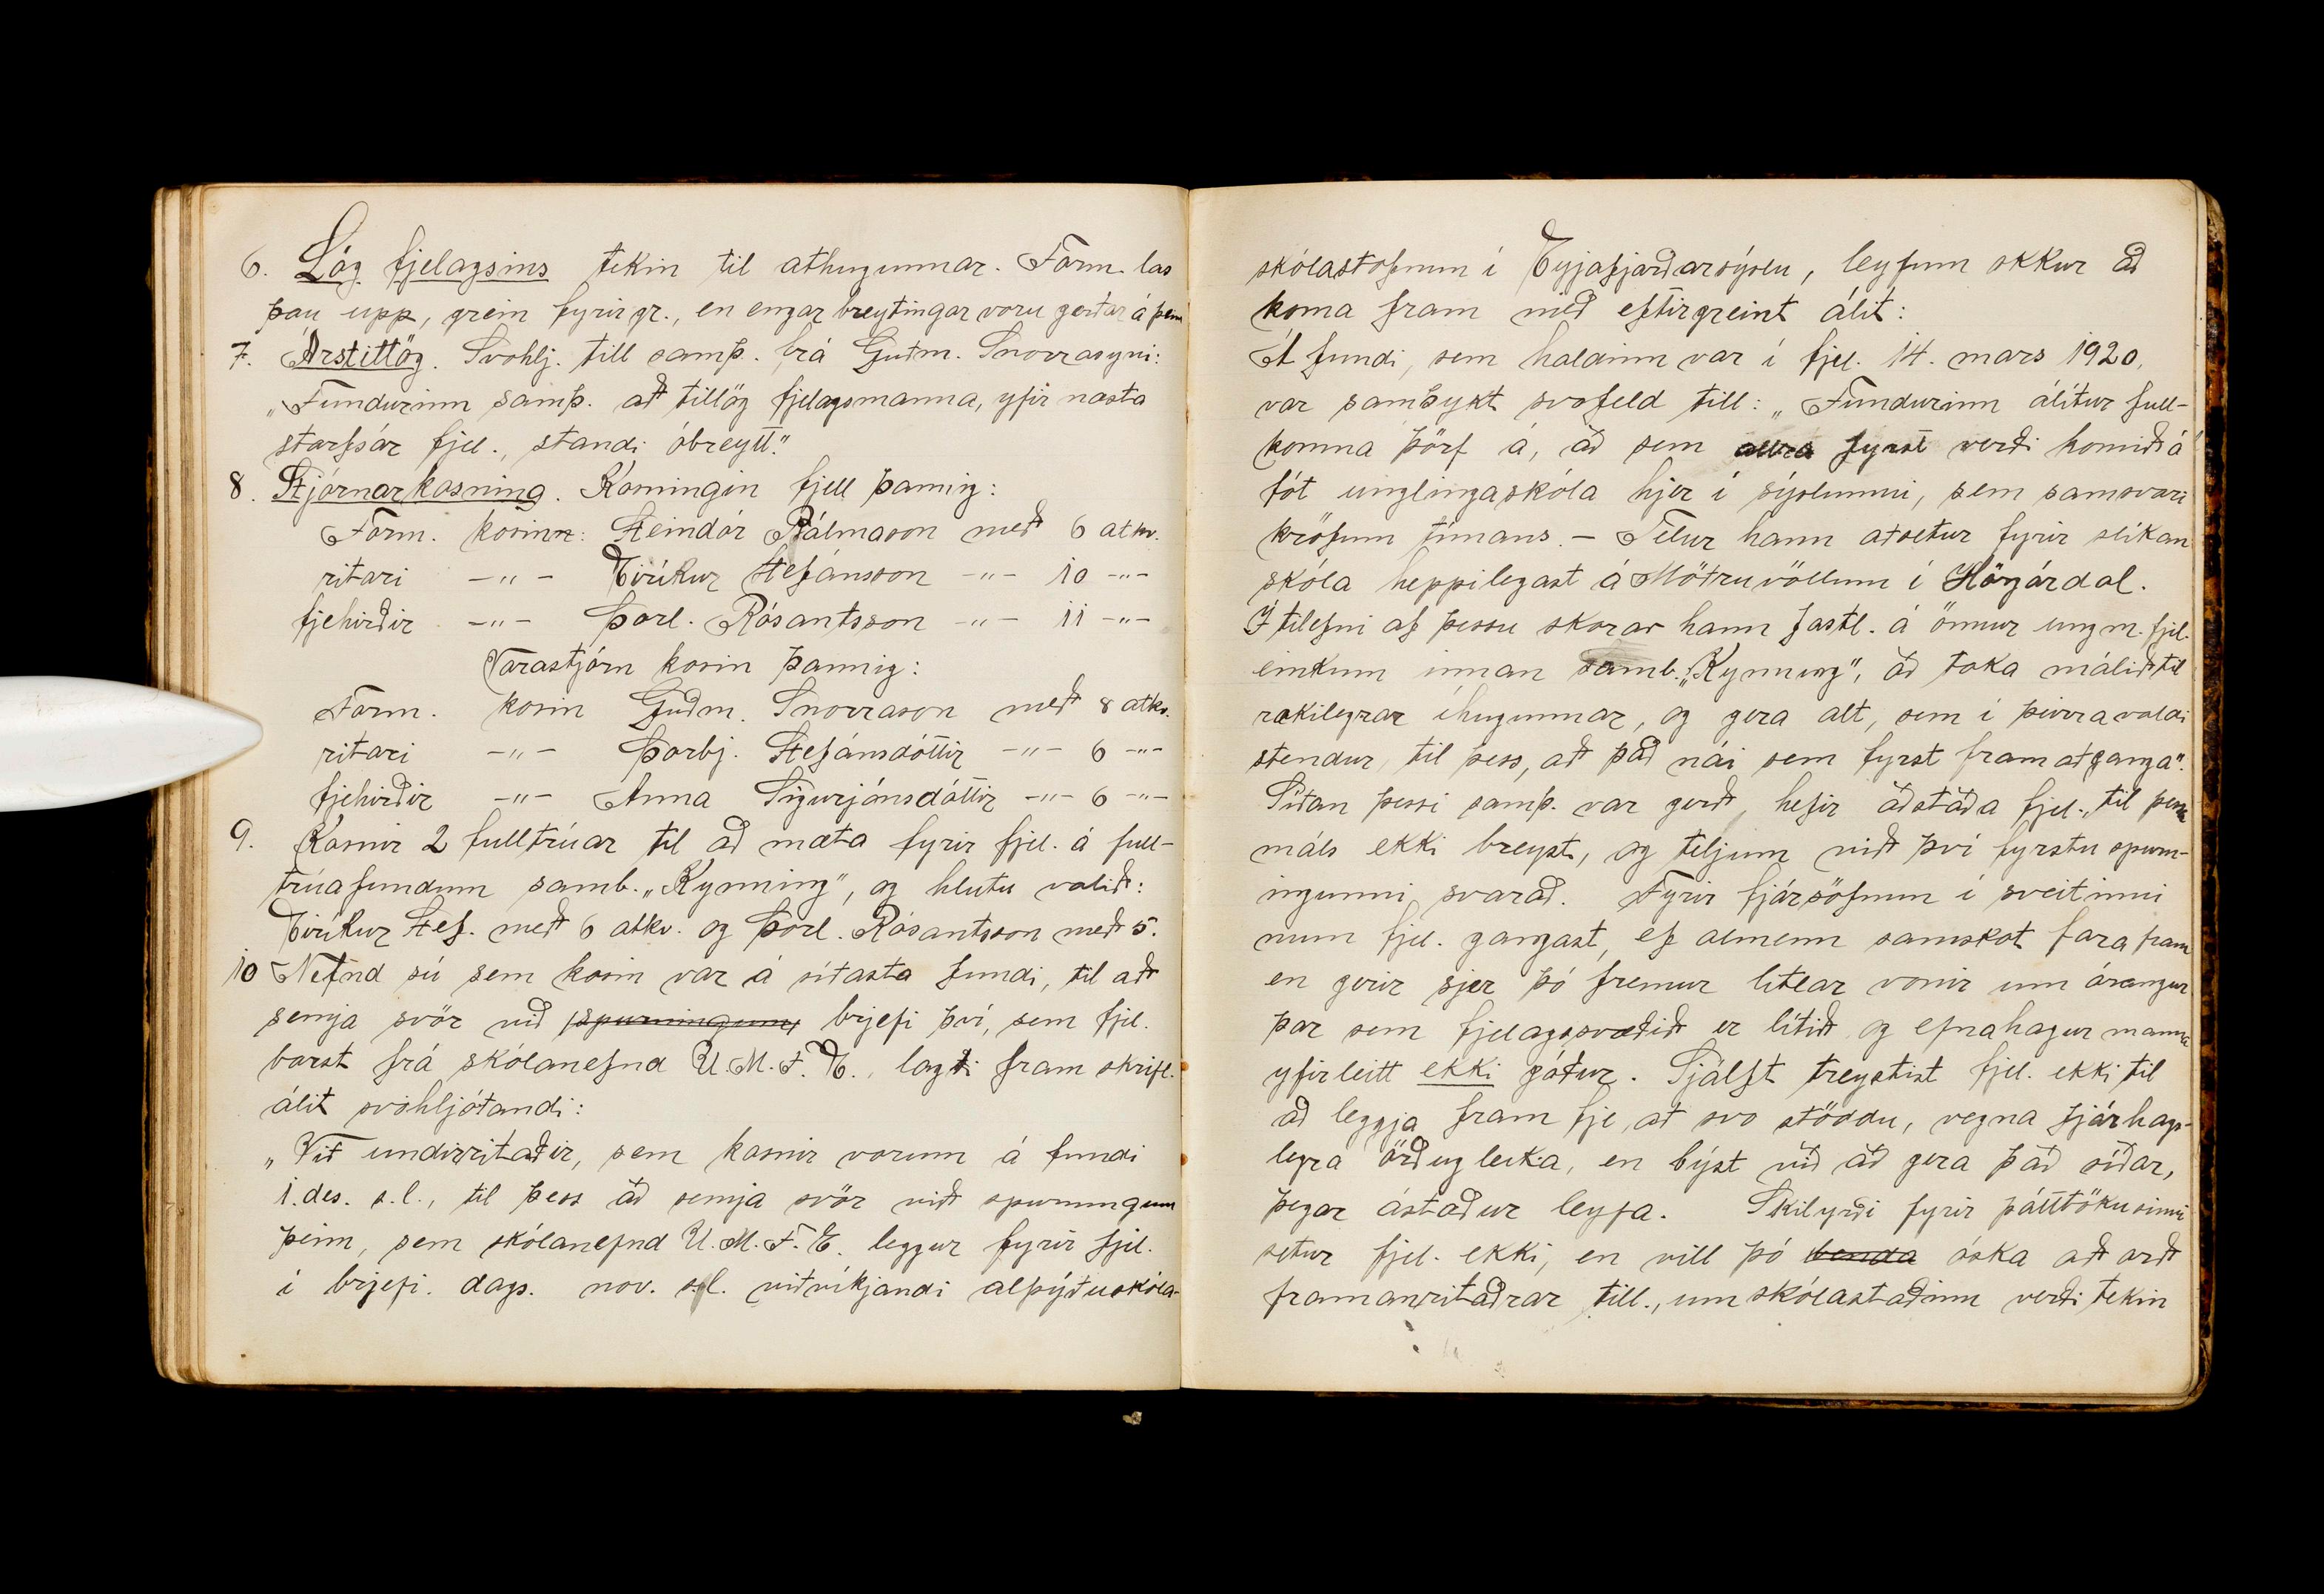 6. Lög fjelagsins tekin til athugunnar. Form. las
þau upp, grein fyrir gr., en engar breytingar voru gerðar á þeim
7. Árstillög. Svohlj. till samþ. frá Guðm. Snorrasyni:
„Fundurinn samþ. að tillög fjelagsmanna, yfir næsta
starfsár fjel., standi óbreytt."
8. Stjórnarkosning. Kosningin fjell þannig:
Form. kosinn: Steindór Pálmason með 6 atkv.
ritari -"- Eiríkur Stefánsson -"- 10 -"-
fjehirðir -"- Þorl. Rósantsson -"- 11 -"-
Varastjórn kosin þannig:
Form. kosin Guðm. Snorrason með 8 atkv.
ritari -"- Þorbj. Stefánsdóttir -"- 6 -"-
fjehirðir -"- Anna Sigurjónsdóttir -"- 6 -"-
9. Kosnir 2 fulltrúar til að mæta fyrir fjel. á full-
trúafundum samb. „Kynning", og hlutu valið:
Eiríkur Stef. með 6 atkv. og Þorl. Rósantsson með 5.
10 Nefnd sú sem kosin var á síðasta fundi, til að
semja svör við spurningum brjefi því, sem fjel.
barst frá skólanefnd U.M.F.E., lagði fram skrifl.
álit svohljóðandi:
„Við undirritaðir, sem kosnir vorum á fundi
1. des. s.l., til þess að semja svör við spurningum
þeim, sem skólanefnd U.M.F.E. leggur fyrir fjel.
í brjefi. dags. nov. s.l. viðvíkjandi alþýðuskóla-
skólastofnun í Eyjafjarðarsýslu, leyfum okkur að
koma fram með eftirgreint álit:
Á fundi, sem haldinn var í fjel. 14. mars 1920,
var samþykt svofeld till: „Fundurinn álítur full-
komna þörf á, að sem allra fyrst verði komið á
fót unglingaskóla hjer í sýslunni, sem samsvari
kröfum tímans. - Telur hann aðsetur fyrir slíkan
skóla heppilegast á Möðruvöllum í Hörgárdal.
Í tilefni af þessu skorar hann fastl. á önnur ungm. fjel.
einkum innan samb. „Kynning", að taka málið til
rækilegrar íhugunnar, og gera alt, sem í þeirra valdi
stendur, til þess, að það nái sem fyrst fram að ganga".
Síðan þessi samþ. var gerð, hefir aðstaða fjel., til þessa
máls ekki breyst, og teljum við því fyrstu spurn-
ingunni svarað. Fyrir fjársöfnun í sveitinni
mun fjel. gangast, ef almenn samskot fara fram
en gerir sjer þó fremur litlar vonir um árangur
þar sem fjelagssvæðið er lítið og efnahagur manna
yfirleitt ekki góður. Sjálft treystist fjel. ekki til
að leggja fram fje, að svo stöddu, vegna fjárhags-
legra örðugleika, en býst við að gera það síðar,
þegar ástæður leyfa. Skilyrði fyrir þátttöku sinni
setur fjel. ekki, en vill þó benda óska að orð
framanritaðrar till., um skólastaðinn verði tekin